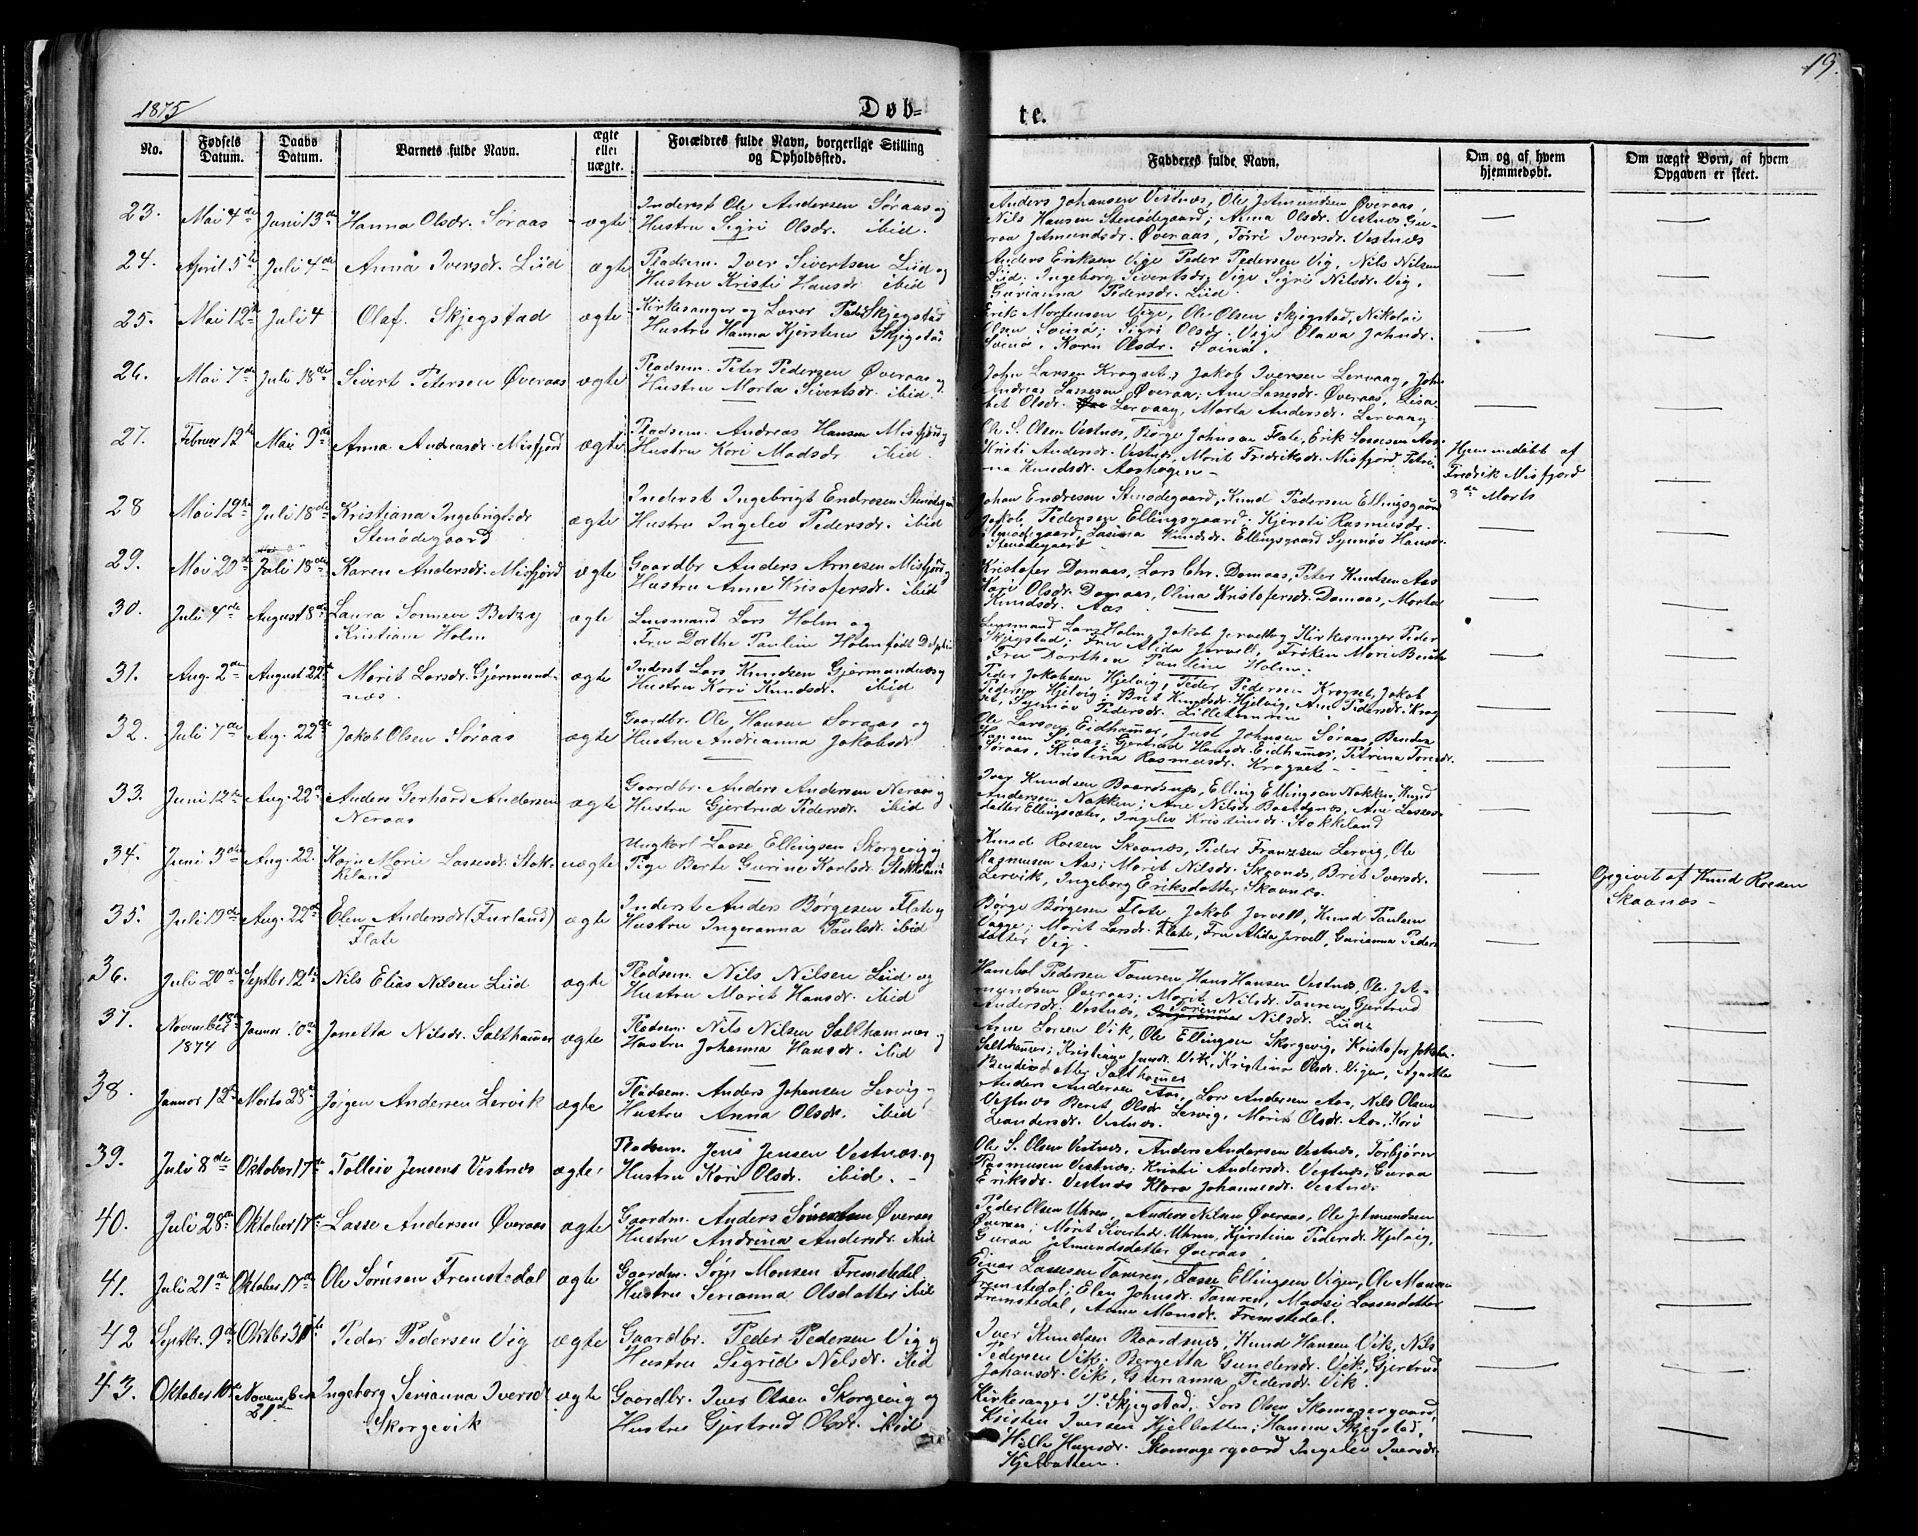 1875
Døb-
te.
19.
No.
Fødsels Datum.
Daabs Datum.
Barnets fulde Navn.
ægte eller uægte.
Forældres fulde Navn, borgerlige Stilling og Opholdssted.
Fadderes fulde Navn.
Om og af hvem hjemmedøbt.
Om uægte Børn, af hvem Opgaven er skeet.
23. Mai 4de Juni 13de Hanna Olsdr. Søraas ægte
Inderst Ole Andersen Søraas og
Hustru Sigri Olsdr. ibid.
Anders Johansen Vestnæs, Ole Jetmundsen Øveraas,
Nils Hansen Stenødegaard; Anna Olsdr. Vestnæs Gu-
raa Jetmundsdr. Øveraas, Tørri Iversdr. Vestnæs
24. April 5te Juli 4de Anna Iversdr. Liid ægte
Pladsm. Iver Sivertsen Liid og
Hustru Kristi Hansdr. ibid
Anders Eriksen Vige Peder Pedersen Vig, Nils Nilsen
Liid; Ingeborg Sivertsdr. Vige Sigri Nilsdr. Vig,
Gurianna Pedersdr. Liid.
25. Mai 12te Juli 4 Olaf Skjegstad ægte
Kirkesanger og Lærer Peder Skjegstad
Hustru Hanna Kjerstine Skjegstad
Erik Mortensen Vige, Ole Olsen Skjegstad, Nikolai
Olsen Svinø; Sigri Olsdr. Vige Olava Johndr.
Svinø, Karn Olsdr. Svinø.
26. Mai 7de Juli 18de Sivert Petersen Øveraas ægte
Pladsm. Peter Pedersen Øveraas og
Hustru Marta Sivertsdr. ibid.
John Larsen Krogset; Jakob Iversen Lervaag, Joh.
Andreas Lassesen Øveraa; Ane Lassesdr. Øveraas, Lisa-
bet Olsdr. Lervaag, Marta Andersdr. Lervaag
27. Februar 12te Mai 9de Anna Andreasdr. Misfjord ægte
Pladsm. Andreas Hansen Misfjord og
Hustru Kari Madsdr. ibid.
Ole S. Olsen Vestnæs, Børge Johnsen Flate, Erik Larsen Aas
Kristi Andersdr. Vestnæs, Marit Fredriksdr. Misfjord, Petri-
na Knudsdr. Aashagen
Hjemmedøbt af
Fredrik Misfjord
8de Marts
28 Mai 12te Juli 18de Kristiana Ingebrigtsdr ægte
Stenødegaard
Inderst Ingebrigt Endresen Stenødegaard
Hustru Ingelev Pedersdr. ibid
Johan Endresen Stenødegaard, Knud Pedersen Ellingsgaard
Jakob Pedersen Ellingsgaard. Kjersti Rasmusdr.
Stenødegaard, Lasina Knudsdr. Ellingsgaard Synnøv Hansdr.
Stenødegaard
29. Mai 20de Juli 18de Karen Andersdr. Misfjord ægte
Gaardbr Anders Arnesen Misfjord og
Hustru Anne Kristofersdr. ibid
Kristofer Domaas, Lars Chr. Domaas, Peter Knudsen Aas
Kari Olsdr. Domaas, Olina Kristofersdr. Domaas, Marta
Knudsdr. Aas
30. Juli 4de August 8de Laura Sonneve Betzy ægte
Kristiane Holm
Lensmand Lars Holm og
Fru Dorthe Pauline Holm født
Lensmand Lars Holm, Jakob Jervell og Kirkesanger Peder
Skjegstad; Fru Alida Jervell, Frøken Marie
Fru Dorthea Pauline Holm.
31. Aug. 2de August 22de Marit Larsdr. Gjermund- ægte
næs.
Inderst Lars Knudsen Gjermundnæs og
Hustru Kari Knudsdr. ibid
Peder Jakobsen Hjelvig, Peder Pedersen Krogset, Jakob
Pedersen Hjelvig; Brit Knudsdr. Hjelvig, Ane Pedersdr. Krog
set, Synnøv Pedersdr. Lilletomren
32. Juli 7de Aug. 22de Jakob Olsen Søraas ægte
Gaardbr. Ole Hansen Søraas og
Hustru Andrianna Jakobsdr.
Ole Larsen Eidhamer, Just Johnsen Søraas, Bendik
Hansen Søraas; Gertrud Hansdr. Eidhamer, Petrina Toresdr.
Søraas, Kristina Rasmusdr. Krogset
33. Juni 12te Aug. 22de Anders Gerhard Andersen ægte
Neraas
Gaardbr. Anders Andersen Neraas og
Hustru Gjertrud Pedersdr. ibid
Iver Knudsen Baardsnæs, Elling Ellingsen Nakken, Knud
Andersen Nakken; Ane Nilsdr. Baardsnæs, Ane Lasses-
datter Ellingsæter, Ingelev Kristinsdr. Stokkeland
34. Juni 3die Aug. 22. Karn Marie Lassesdr. Stok- uægte
keland
Ungkarl Lasse Ellingsen Skorgevig og
Pige Berte Gurine Karlsdr. Stokkeland
Knud Roesen Skaanæs, Peder Franzsen Lervig, Ole
Rasmussen Aas; Marit Nilsdr. Skaanæs, Brit Iversdr.
Lervik, Ingeborg Eriksdatter Skaanæs.
Opgivet af Knud Roesen
Skaanæs
35. Juli 19de Aug. 22de Elen Andersdr. (Furland) ægte
Flate
Inderst Anders Børgesen Flate og
Hustru Ingeranna Paulsdr. ibid
Børge Børgesen Flate, Jakob Jervell, Knud Paulsen
Vaage; Marit Larsdr. Flate, Fru Alida Jervell, Gurianna Peders
datter Vig
36. Juli 20de Septbr 12te Nils Elias Nilsen Liid ægte
Pladsm. Nils Nilsen Liid og
Hustru Marit Hansdr. ibid
Hanibal Pedersen Tomren, Hans Hansen Vestnæs, Ole Jet-
mundsen Øveraas; Marit Nilsdr. Tomren, Gjertrud
Andersdr. Vestnæs, Nilsdr. Liid.
37. November 13de Januar 10de Jonetta Nilsdr. Salthamer ægte
1874
Pladsm. Nils Nilsen Salthammer og
Hustru Johanna Hansdr. ibid
Arne Larsen Vik, Ole Ellingsen Skorgevig, Kristofer Jakobsen
Salthamer; Kristiane Vik, Kristina Olsdr. Vigen, Agnethe
Bendixdatter Salthamer
38. Januar 12te Marts 28de Jørgen Andersen Lervik ægte
Pladsm. Anders Johansen Lervig og
Hustru Anna Olsdr. ibid
Anders Andersen Aas, Lars Andersen Aas, Nils Olsen
Vestnæs Berit Olsdr Lervig, Marit Olsdr. Aas, Kari
Leandersdr. Vestnæs.
39. Juli 8de Oktober 17de Tolleiv Jensen Vestnæs ægte
Pladsm. Jens Jensen Vestnæs og
Hustru Kari Olsdr. ibid.
Ole S. Olsen Vestnæs, Anders Andersen Vestnæs, Torbjørn
Rasmusen Vestnæs; Kristi Andersdr. Vestnæs, Guraa
Eriksdr. Vestnæs Klara Johannesdr. Vestnæs
40. Juli 28de Oktober 17de Lasse Andersen Øveraas ægte
Gaardm. Anders Øveraas
Hustru Andrina Andersdr. ibid
Peder Olsen Uhren, Anders Nilsen Øveraas, Ole Jetmundsen
Øveraas; Marit Sivertsdr. Uhren, Kjerstina Pedersdr. Hjelvig,
Guraa Jetmundsdatter Øveraas
41. Juli 21de Oktober 17de Ole Sørnsen Fremstedal ægte
Gaardm. Sørn Monsen Fremstedal
Hustru Serianna Olsdatter ibid
Einar Lassesen Tomren, Lasse Ellingsen Vigen, Ole Monsen
Fremstedal; Elen Johnsdr. Tomren, Madsi Lassesdatter
Fremstedal, Anne Monsdr. Fremstedal.
42 Septbr. 9de Oktbr 31te Peder Pedersen Vig ægte
Gaardbr. Peder Pedersen Vig og
Hustru Sigrid Nilsdr. ibid
Iver Knudsen Baardsnæs, Knud Hansen Vik, Nils
Pedersen Vik; Bergetta Gundersdr. Vik, Gjertrud
Johansdr. Vik, Gurianna Pedersdr. Vik.
43. Oktober 10de November Ingeborg Serianna Iversdr ægte
21de Skorgevik
Gaardbr. Iver Olsen Skorgevig og
Hustru Gjertrud Olsdr. ibid
Kirkesanger P. Skjegstad, Lars Olsen Skomagergaard,
Kristen Iversen Kjelbotten; Hanna Skjegstad,
Hansdr. Skomagergaard Ingelev Iversdr.
Kjelbotten.